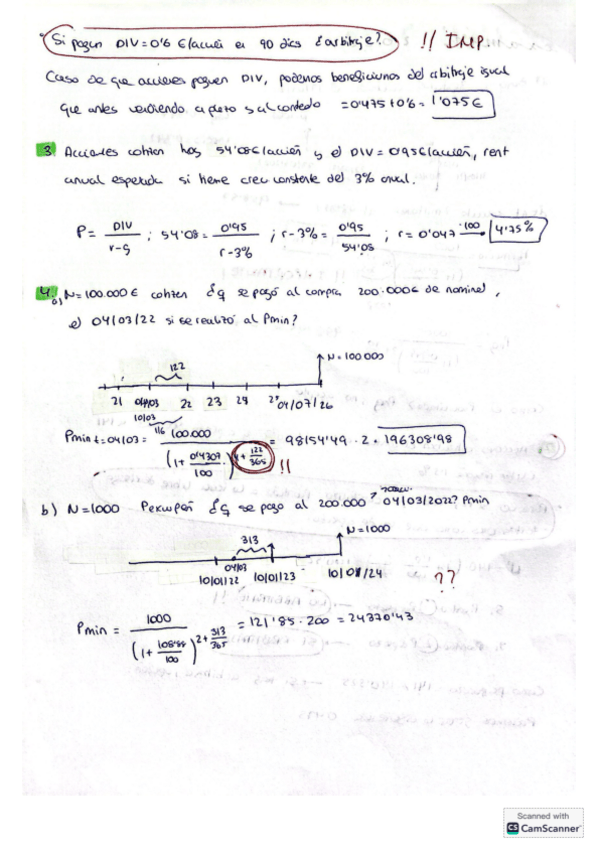 Si pagan DIV=0'6 €/acción en 90 días ¿arbitraje? !! IMP
Caso de que acciones paguen DIV, podemos beneficiarnos del arbitraje igual
que antes vendiendo a plazo y al contado = 0'475+0'6 = 1'075€
3. Acciones cotizan hoy 54'08€/acción y el DIV = 0'95€/acción, rent
anual esperada si tiene crec constante del 3% anual.
P = DIV / r-g ; 54'08 = 0'95 / r-3% ; r-3% = 0'95 / 54'08 ; r = 0'047 ·100 → 4'75%
4. a) N=100.000€ cotizan ¿q se pagó al compra 200.000€ de nominal,
a) 04/03/22 si se realizó al Pmin?
122
N=100.000
21 04/03 22 23 24 04/07/26
10/03
116
Pmin t=04/03 = 100.000 / (1+ 0'4307/100)^4+122/365 = 98154'49 · 2 = 196308'98
!!
b) N=1000 ¿q se pagó al 200.000 04/03/2022? Pmin
N=1000
313
04/03
10/01/22 10/01/23 10/01/24 ??
Pmin = 1000 / (1+ 108'88/100)^2+313/365 = 121'85 · 200 = 24370'43
Scanned with
CS CamScanner